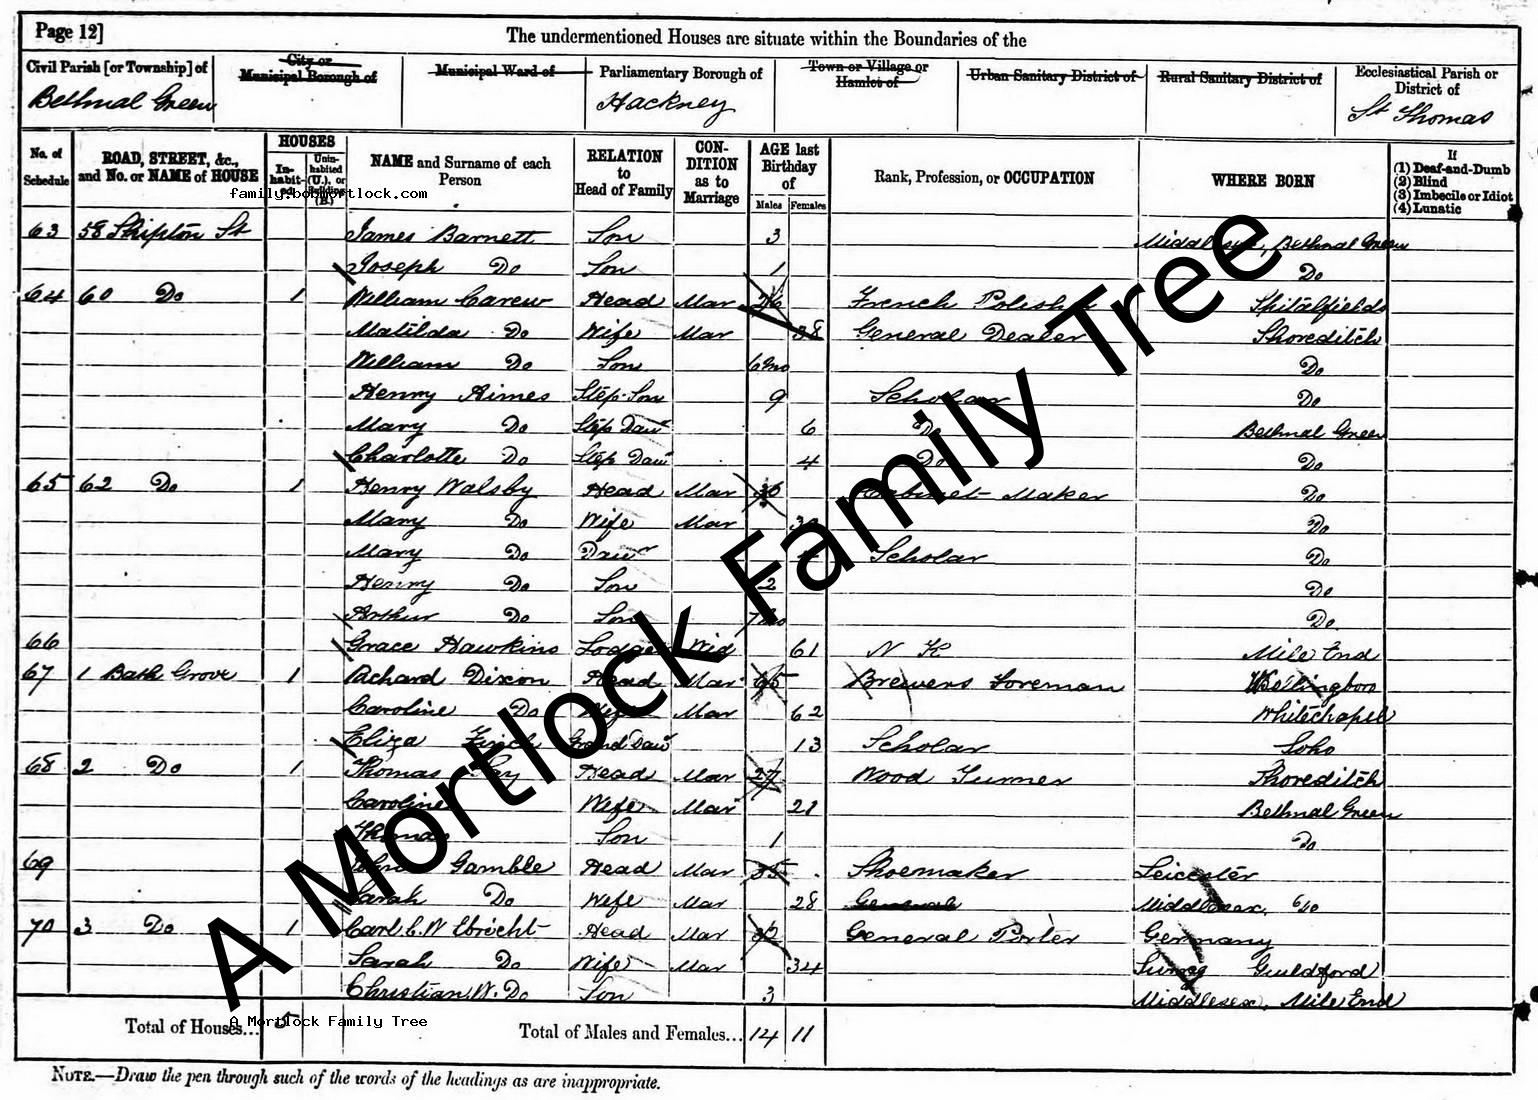 Page 12]
The undermentioned Houses are situate within the Boundaries of the
Civil Parish [or Township] of
Bethnal Green
City or Municipal Borough of
Municipal Ward of
Parliamentary Borough of
Hackney
Town or Village or Hamlet of
Urban Sanitary District of
Rural Sanitary District of
Ecclesiastical Parish or District of
St Thomas
No. of Schedule
ROAD, STREET, &c., and No. or NAME of HOUSE
HOUSES
In-habit-ed
Unin-habited (U.), or Building (B.)
NAME and Surname of each Person
RELATION to Head of Family
CON-DITION as to Marriage
AGE last Birthday of
Males Females
Rank, Profession, or OCCUPATION
WHERE BORN
If
(1) Deaf-and-Dumb
(2) Blind
(3) Imbecile or Idiot
(4) Lunatic
family.bobmortlock.com
63 58 Shipton St James Barnett Son 3 Middlesex, Bethnal Green
Joseph Do Son 1 Do
64 60 Do 1 William Carew Head Mar 26 French Polisher Spitalfields
Matilda Do Wife Mar 38 General Dealer Shoreditch
William Do Son 6mo Do
Henry Aimes Step-Son 9 Scholar Do
Mary Do Step Daur 6 Do Bethnal Green
Charlotte Do Step Daur 4 Do Do
65 62 Do 1 Henry Walsby Head Mar 36 Cabinet Maker Do
Mary Do Wife Mar Do
Mary Do Daur Scholar Do
Henry Do Son 2 Do
Arthur Do Son Do
66 Grace Hawkins Lodger Wid 61 N K Mile End
67 1 Bath Grove 1 Richard Dixon Head Mar 65 Brewers Foreman Wellingboro
Caroline Do Wife Mar 62 Whitechapel
Eliza Finch Grand Daur 13 Scholar Soho
68 2 Do 1 Thomas Head Mar 27 Wood Turner Shoreditch
Caroline Wife Mar 21 Bethnal Green
Thomas Son 1 Do
69 Gamble Head Mar 35 Shoemaker Leicester
Sarah Do Wife Mar 28 General Middlesex, Do
70 3 Do 1 Carl C. W Ebrecht Head Mar General Porter Germany
Sarah Do Wife Mar 34 Surrey Guildford
Christian W. Do Son 3 Middlesex, Mile End
Total of Houses... 5
Total of Males and Females... 14 11
A Mortlock Family Tree
A Mortlock Family Tree
NOTE.—Draw the pen through such of the words of the headings as are inappropriate.